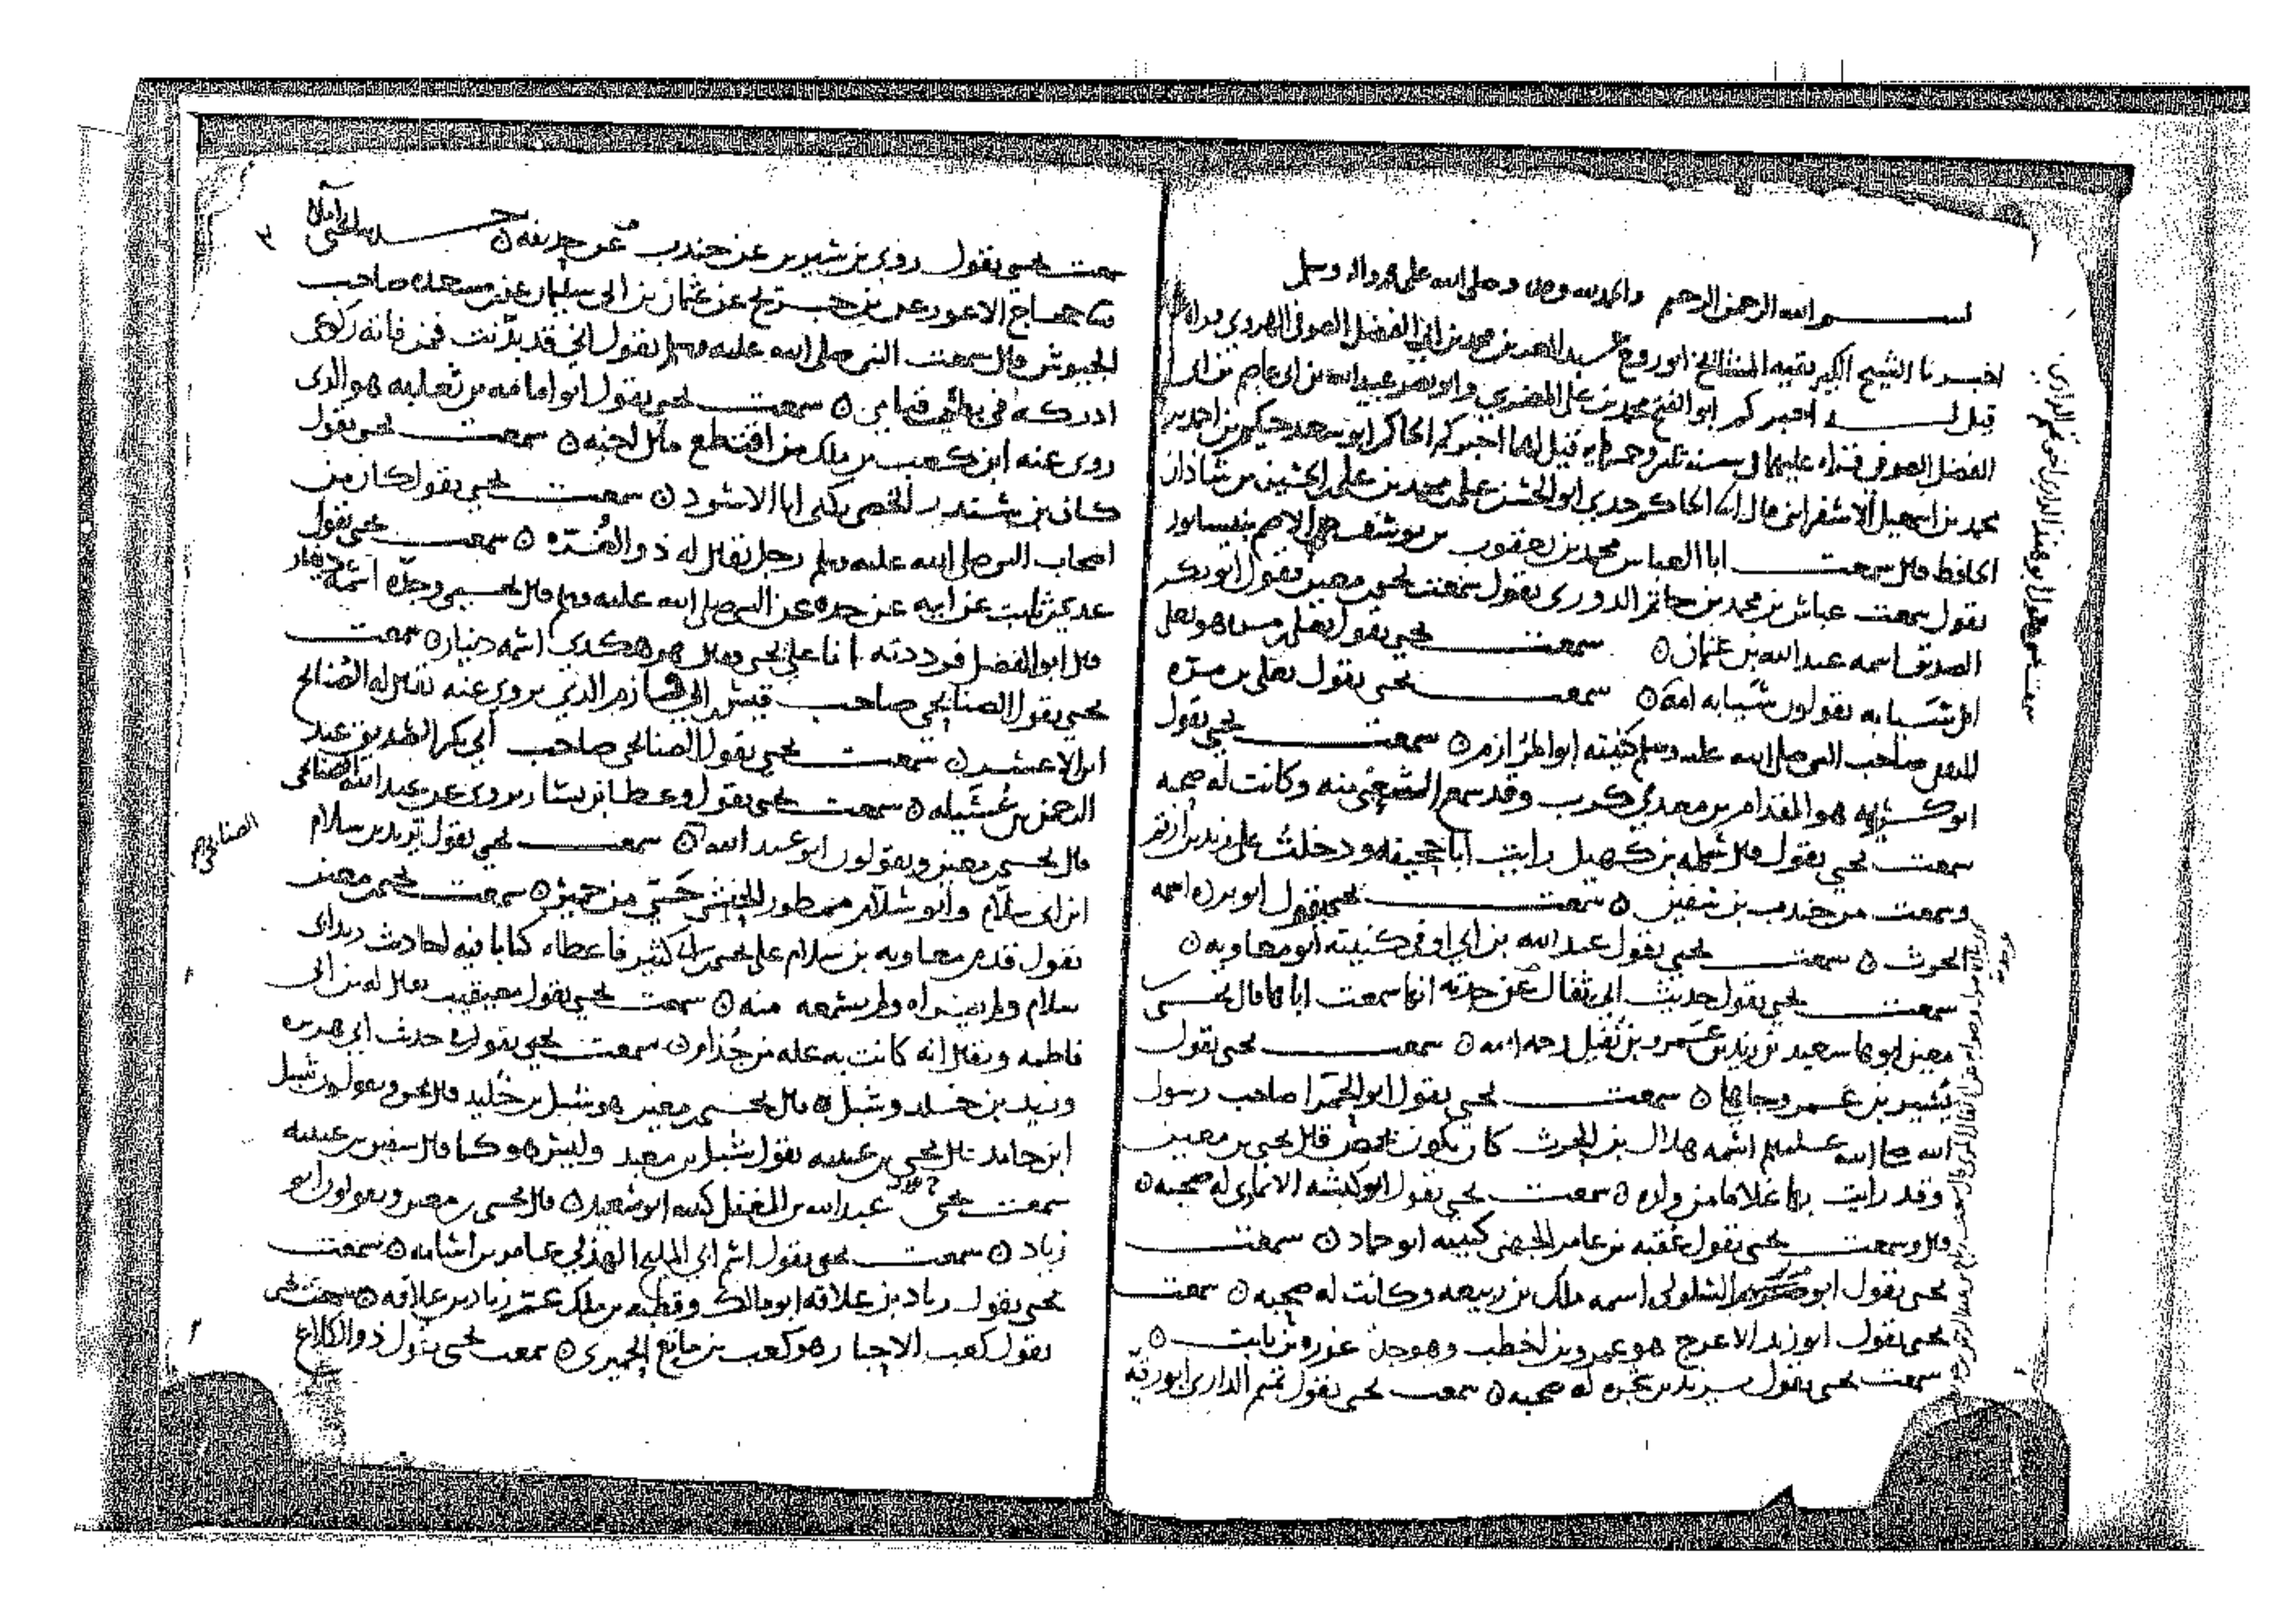 بسم الله الرحمن الرحيم والحمد لله وحده وصلى الله على محمد واله وسلم
اخبرنا الشيخ الكبير بقية المشائخ ابو روح عبد المعز بن محمد بن ابي الفضل الصوفي الهروي قراه
قيل له اخبركم ابو الفتح محمد بن علي المضري وابو نصر عبيد الله بن ابي عاصم بن ابي
الفضل الصوفي قراه عليهما في سنه قيل لهما اخبركم الحاكم ابو سعد حكيم بن احمد بن
محمد بن اسمعيل الاسفرايني قال انا الحاكم جدي ابو الحسن علي محمد بن علي بن الحسين بن شاذان
الحافظ قال سمعت ابا العباس محمد بن يعقوب بن يوسف الاصم بنيسابور
يقول سمعت عباس بن محمد بن حاتم الدوري يقول سمعت يحيى بن معين يقول ابو بكر
الصديق اسمه عبد الله بن عثمان ه سمعت يحيى يقول يعلى بن مره هو يعلى
ابن سيابه يقولون سيابه امه ه سمعت يحيى يقول يعلى بن مره
الثقفي صاحب النبي صلى الله عليه وسلم كنيته ابو المرازم ه سمعت يحيى يقول
ابو كريمه هو المقدام بن معدي كرب وقد سمع الشعبي منه وكانت له صحبه
سمعت يحيى يقول قال سلمه بن كهيل رايت ابا جحيفه ودخلت على زيد بن ارقم
وسمعت من جندب بن سفين ه سمعت يحيى يقول ابو برده اسمه
الحرث ه سمعت يحيى يقول عبد الله بن ابي اوفى كنيته ابو معاويه ه
سمعت يحيى يقول حديث ابي ثفال عن جدته انها سمعت اباها قال يحيى
بن معين ابوها سعيد بن زيد بن عمرو بن نفيل رحمه الله ه سمعت يحيى يقول
بشير بن عمرو جاهلي ه سمعت يحيى يقول ابو الحمرا صاحب رسول
الله صلى الله عليه وسلم اسمه هلال بن الحرث كان يكون بحمص قال يحيى بن معين
وقد رايت بها غلاما من ولده ه سمعت يحيى يقول ابو كبشه الانماري له صحبه ه
قال وسمعت يحيى يقول عقبه بن عامر الجهني كنيته ابو حماد ه سمعت
يحيى يقول ابو مريم السلولي اسمه ملك بن ربيعه وكانت له صحبه ه سمعت
يحيى يقول ابو زيد الاعرج هو عمرو بن اخطب وهو جد عزره بن ثابت ه
سمعت يحيى يقول يزيد بن شجره له صحبه ه سمعت يحيى يقول تميم الداري ابو رقيه
سمعت يقول ابو هند الداري اخو تميم الداري
سمعت يحيى يقول روى بن سيرين عن جندب عن حذيفه ه
حجاج الاعور عن بن جريج عن عثمان بن ابي سليمان عن بن مسعده صاحب
الجيوش قال سمعت النبي صلى الله عليه وسلم يقول اني قد بدنت فمن فاته ركوعي
ادركه في بطئ قيامي ه سمعت يحيى يقول ابو امامه بن ثعلبه هو الذي
روى عنه ابن كعب بن ملك من اقتطع مال اخيه ه سمعت يحيى يقول
كان بن سندر الخصي يكنى ابا الاسود ه سمعت يحيى يقول كان من
اصحاب النبي صلى الله عليه وسلم رجل يقال له ذو الغره ه سمعت يحيى يقول
عدي بن ثابت عن ابيه عن جده عن النبي صلى الله عليه وسلم قال يحيى وجده اسمه دينار
قال ابو الفضل فرددته انا على يحيى وقال هو هكذى اسمه دينار ه سمعت
يحيى يقول الصنابحي صاحب قيس بن ابي حازم الذي يروي عنه يقال له الصنابح
ابن الاعسر ه سمعت يحيى يقول الصنابحي صاحب ابي بكر الصديق عبد
الرحمن بن عسيله ه سمعت يحيى يقول وعطا بن يسار يروي عن عبد الله الصنابحي
قال يحيى بن معين ويقولون ابو عبد الله ه سمعت يحيى يقول زيد بن سلام
ابن ابي سلام وابو سلام ممطور الحبشي حي من حمير ه سمعت يحيى بن معين
يقول قدم معاويه بن سلام على يحيى بن ابي كثير فاعطاه كتابا فيه احاديث زيد بن
سلام ولم يقراه ولم يسمعه منه ه سمعت يحيى يقول معيقيب يقال له بن ابي
فاطمه ويقال انه كانت به عله من جذام ه سمعت يحيى يقول في حديث ابي هريره
وزيد بن خالد وشبل ه قال يحيى بن معين هو شبل بن خليد قال يحيى ويقولون شبل
ابن حامد قال يحيى بن عيينه يقول شبل بن معبد وليس هو كما قال سفين بن عيينه
سمعت يحيى يقول عبد الله بن المغفل كنيته ابو سعيد ه قال يحيى بن معين ويقولون ابو
زياد ه سمعت يحيى يقول اسم ابي المليح الهذلي عامر بن اسامه ه سمعت
يحيى يقول زياد بن علاقه ابو مالك وقطبه بن ملك عم زياد بن علاقه ه سمعت يحيى
يقول كعب الاحبار هو كعب بن ماتع الحميري ه سمعت يحيى يقول ذو الكلاع
الصنابحي